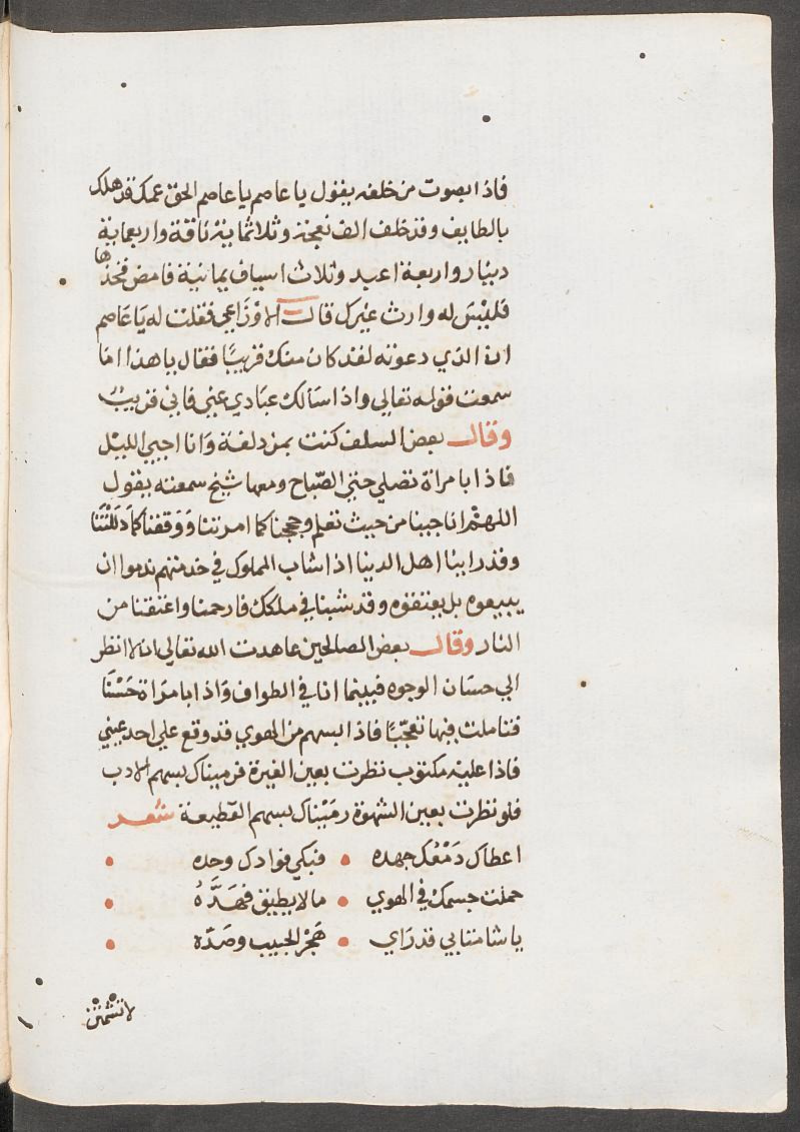 فاذا بصوت من خلفه يقول يا عاصم يا عاصم الحق عمك قد هلك
بالطايف وقد خلف الف نعجة وثلاثماية ناقة واربعماية
دينار واربعة اعبد وثلاث اسياف يمانية فامض فخذها
فليس له وارث غيرك قال الاوزاعي فقلت له يا عاصم
ان الذي دعوته لقد كان منك قريبًا فقال يا هذا اما
سمعت قوله تعالي واذا سالك عبادي عني فاني قريب
وقال بعض السلف كنت بمزدلفة وانا احيي الليل
فاذا بامراة تصلي حتي الصباح ومعها شيخ سمعته يقول
اللهم انا جينا من حيث تعلم وحججنا كما امرتنا ووقفنا كما دللتنا
وقد راينا اهل الدنيا اذا شاب المملوك في خدمتهم تدمموا ان
يبيعوه بل يعتقوه وقد شبنا في ملكك فارحمنا واعتقنا من
النار وقال بعض الصالحين عاهدت الله تعالي ان لا انظر
الي حسان الوجوه فبينما انا في الطواف واذا بامراة حسنا
فتاملت فيها تعجبًا فاذا بسهم من الهوي قد وقع علي احد عيني
فاذا عليه مكتوب نظرت بعين الغيرة فرميناك بسهم الادب
فلو نظرت بعين الشهوة رميناك بسهم القطيعة شعر
اعطاك دمعك جهده • فبكي فوادك وحده •
حملت جسمك في الهوي • ما لا يطيق فهدّهُ •
يا شامتا بي قد راي • هجر الحبيب وصدّه •
لا تشمتن